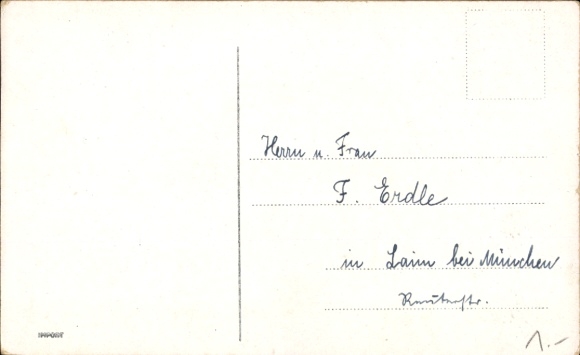 Herrn u. Frau
F. Erdle
in Laim bei München
IMPORT
1.-